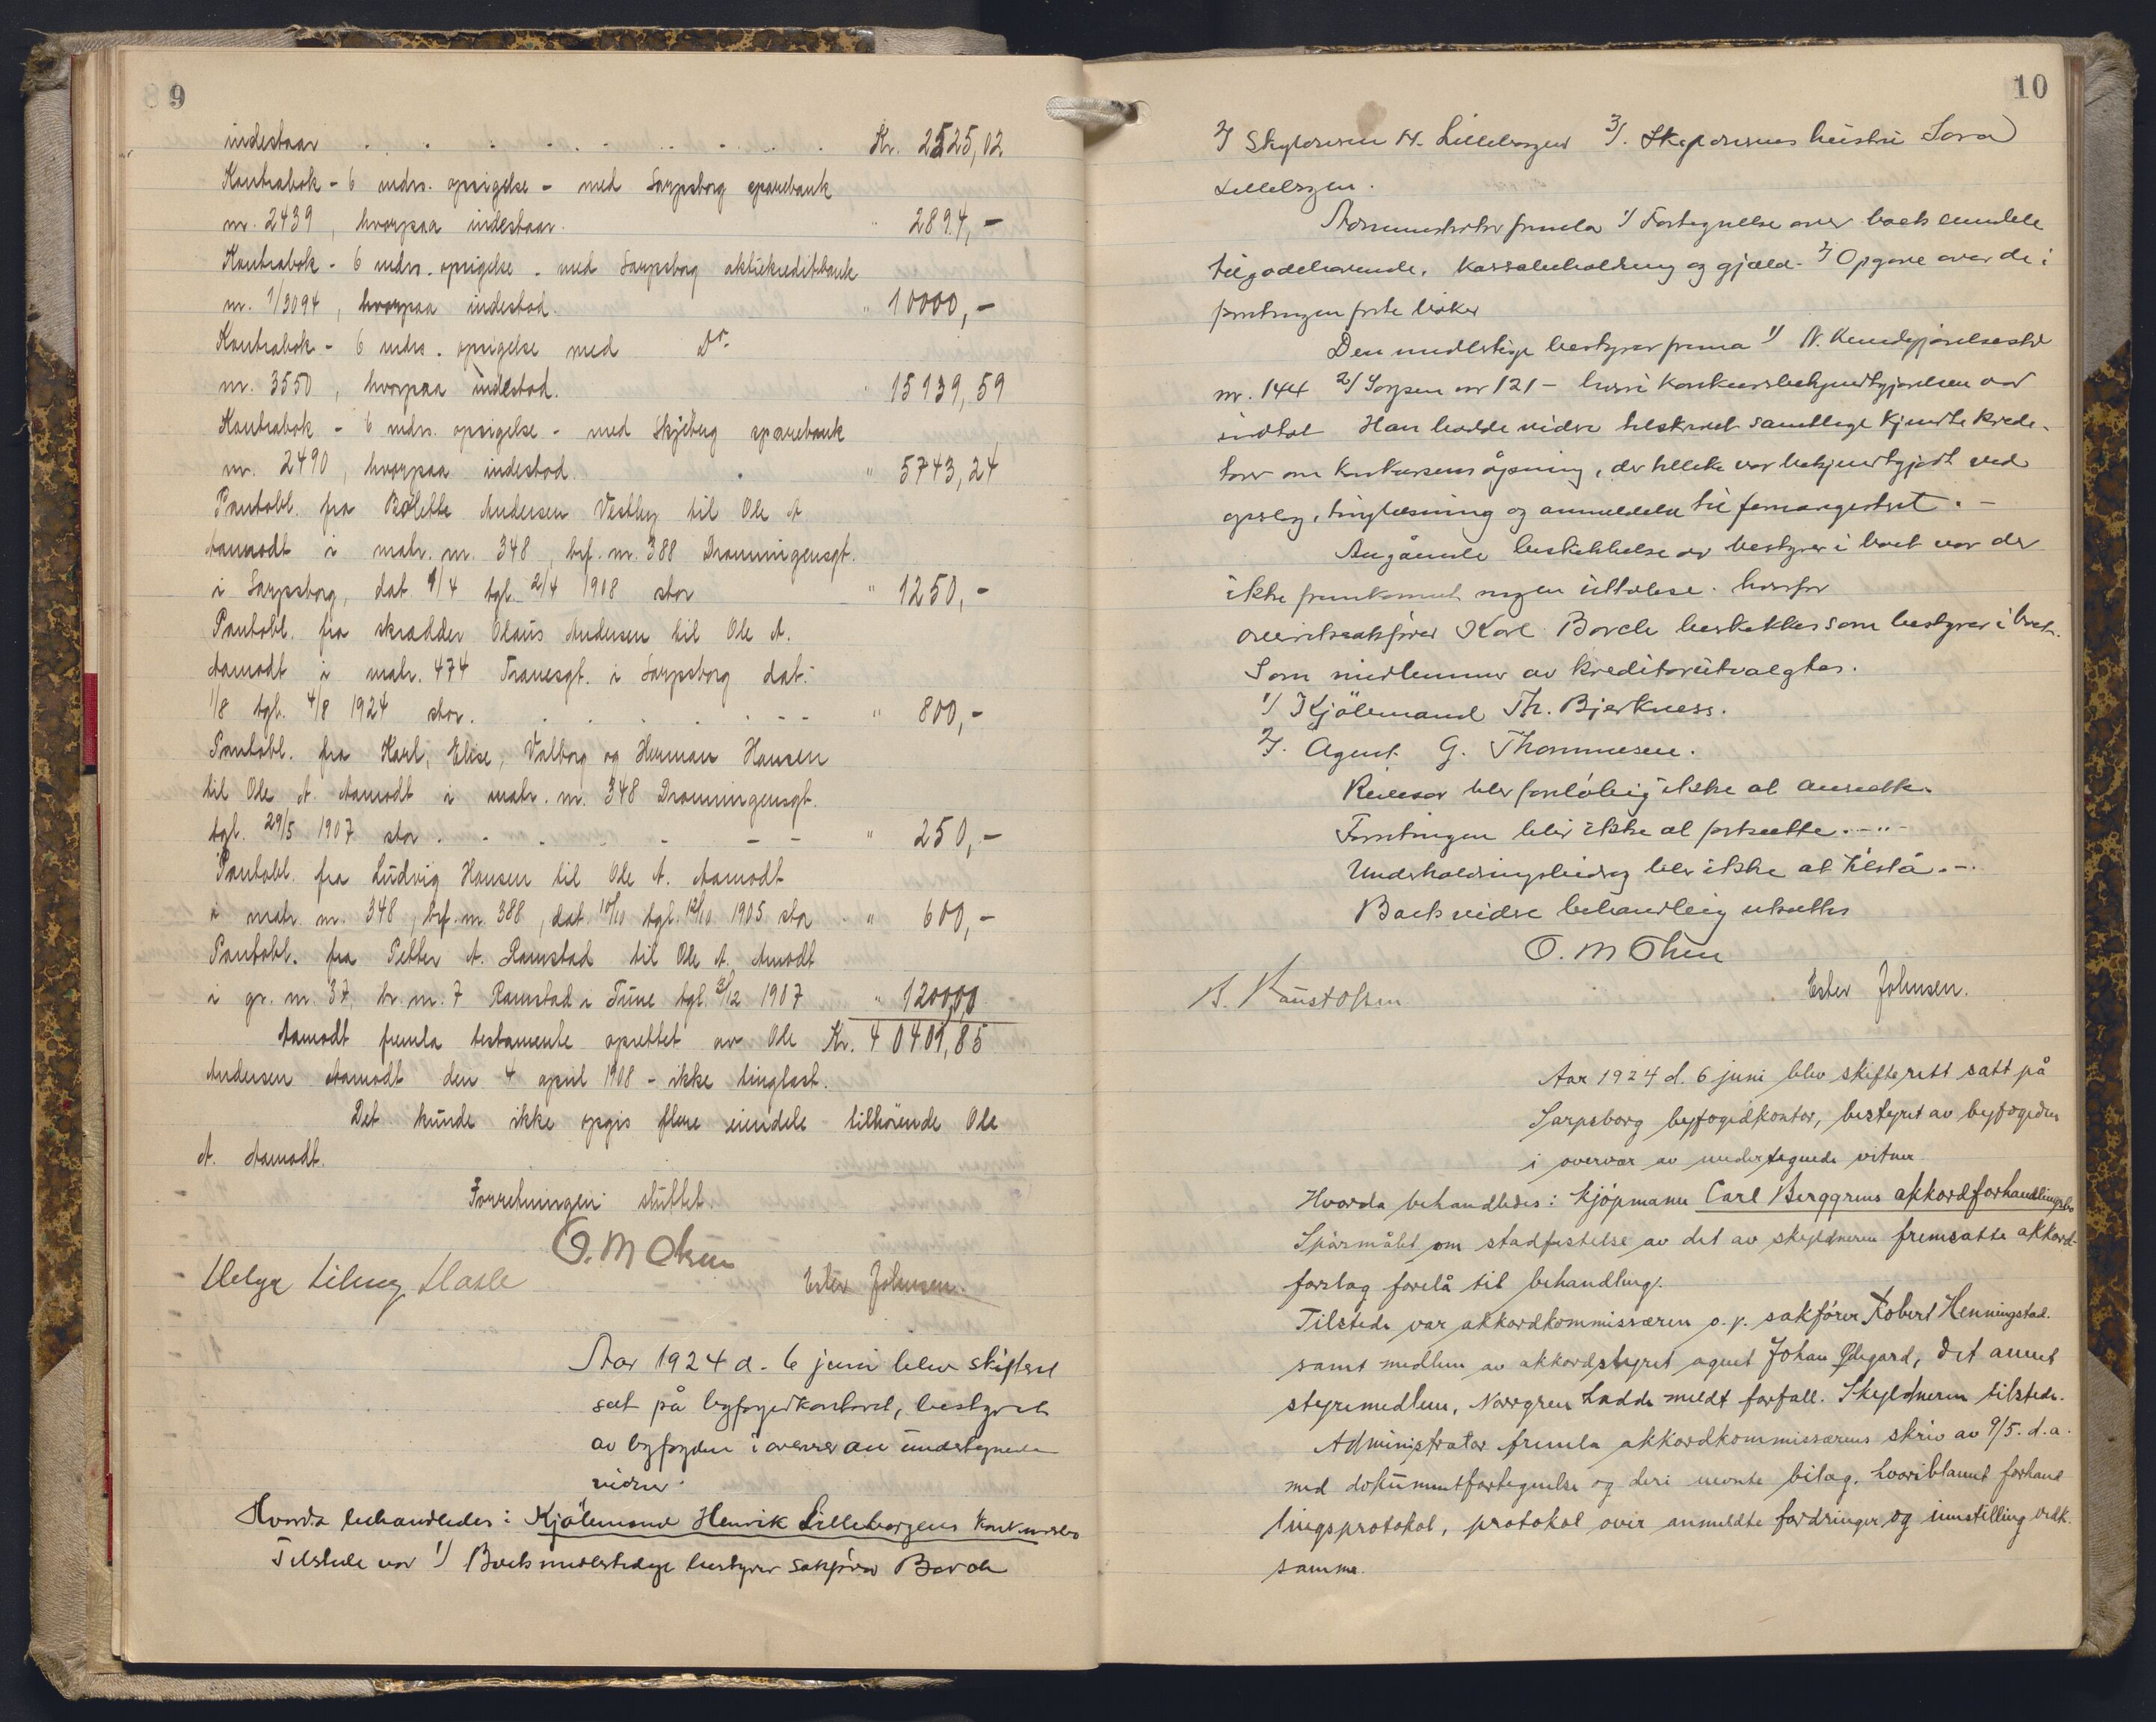 9
indestaar Kr. 2525,02
Kontrabok - 6 mdrs. opsigelse - med Sarpsborg sparebank
nr. 2439, hvorpaa indestaar. " 2894,-
Kontrabok - 6 mdrs. opsigelse - med Sarpsborg aktiekreditbank
nr. 1/3094, hvorpaa indestod. " 10000,-
Kontrabok - 6 mdrs. opsigelse med Do.
nr. 3550, hvorpaa indestod. " 15139,59
Kontrabok - 6 mdrs. opsigelse - med Skjeberg sparebank
nr. 2490, hvorpaa indestod. " 5743,24
Pantobl. fra Bolette Andersen Vestby til Ole A
Aamodt i matr. nr. 348, brf. nr. 388 Dronningensgt.
i Sarpsborg, dat. 1/4 tgl. 2/4 1908 stor " 1250,-
Pantobl. fra skrædder Olaus Andersen til Ole A.
Aamodt i matr. 474 Tranesgt. i Sarpsborg dat.
1/8 tgl. 4/8 1924 stor. " 800,-
Pantobl. fra Karl, Elise, Valborg og Herman Hansen
til Ole A. Aamodt i matr. nr. 348 Dronningensgt.
tgl. 29/5 1907 stor " 250,-
Pantobl. fra Ludvig Hansen til Ole A. Aamodt
i matr. nr. 348, brf. nr. 388, dat. 10/10 tgl. 12/10 1905 stor " 600,-
Pantobl. fra Petter A. Ramstad til Ole A. Amodt
i gr. nr. 37, br. nr. 7 Ramstad i Tune tgl. 3/12 1907 " 1200,00
Aamodt fremla testamente oprettet av Ole Kr. 40401,85
Andersen Aamodt den 4 april 1908 - ikke tinglæst.
Det kunde ikke opgis flere eiendele tilhørende Ole
A. Aamodt.
Forretningen sluttet.
O. M Olsen
Helge Hasle Ester Johnsen.
Aar 1924 d. 6 juni blev skifteret
sat på byfogedkontoret, bestyret
av byfogden i overvær av undertegnede
vidner.
Hvorda behandledes: Kjölemand Henrik Lilleborgens konkursbo
Tilstede var 1) Boets midlertidige bestyrer sakfører Borch
10
2) Skyldneren H. Lilleborgen 3). Skyldnerens hustru Sara
Lilleborgen.
Administrator fremla 1) Fortegnelse over boets eiendele
tilgodehavende, kassabeholdning og gjæld. 2) Opgave over de i
forretningen førte bøker
Den midlertidige bestyrer fremla 1) N. Kundgjörelsestid
nr. 144 2) Sarpen nr 121 - hvori konkursbekjendtgjørelsen var
indtat Han hadde videre tilskrevet samtlige kjendte kredi-
torer om konkursens åpning, der tillike var bekjendtgjort ved
opslag, tinglæsning og anmeldelse til firmaregistret. -
Angående beskikkelse av bestyrer i boet var der
ikke fremkommet nogen uttalelse. hvorfor
overretssakfører Karl Borch beskikkes som bestyrer i boet.
Som medlemmer av kreditorutvalgtes.
1) Kjölemand Th. Bjerkness.
2). Agent G. Thommesen.
Revisor blev foreløbig ikke at ansætte.
Forretningen blir ikke at fortsætte. -..-
Underholdningsbidrag blev ikke at tilstå. -.
Boets videre behandling utsættes
O. M Olsen
Ester Johnsen.
Aar 1924 d. 6 juni blev skifterett satt på
Sarpsborg byfogedkontor, bestyret av byfogeden
i overvær av undertegnede vitner
Hvorda behandledes: kjöpmann Carl Berggrens akkordforhandlingsbo
Spörmålet om stadfestelse av det av skyldneren fremsatte akkord-
forslag forelå til behandling.
Tilstede var akkordkommissæren o.r. sakförer Robert Henningstad.
samt medlem av akkordstyret agent Johan Ødegard, Det annet
styremedlem, Norrgren hadde meldt forfall. Skyldneren tilstede.
Administrator fremla akkordkommissærens skriv av 9/5. d.a.
med dokumentfortegnelse og deri nevnte bilag. hvoriblannt forhand
lingsprotokol, protokol over anmeldte fordringer og innstilling vedk.
samme.